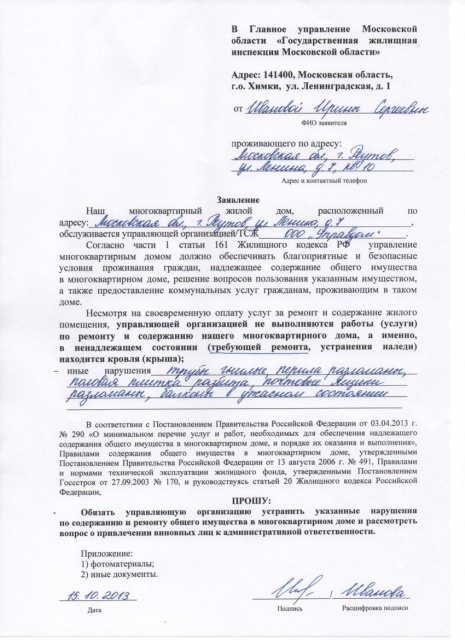 В Главное управление Московской
области «Государственная жилищная
инспекция Московской области»
Адрес: 141400, Московская область,
г.о. Химки, ул. Ленинградская, д. 1
от Ивановой Ирины Сергеевны
ФИО заявителя
проживающего по адресу:
Московская обл, г. Реутов,
ул. Ленина, д. 7, кв 10
Адрес и контактный телефон
Заявление
Наш многоквартирный жилой дом, расположенный по
адресу: Московская обл, г. Реутов, ул Ленина, д. 7 ,
обслуживается управляющей организацией/ТСЖ ООО „Управдом".
Согласно части 1 статьи 161 Жилищного кодекса РФ управление
многоквартирным домом должно обеспечивать благоприятные и безопасные
условия проживания граждан, надлежащее содержание общего имущества
в многоквартирном доме, решение вопросов пользования указанным имуществом,
а также предоставление коммунальных услуг гражданам, проживающим в таком
доме.
Несмотря на своевременную оплату услуг за ремонт и содержание жилого
помещения, управляющей организацией не выполняются работы (услуги)
по ремонту и содержанию нашего многоквартирного дома, а именно,
в ненадлежащем состоянии (требующей ремонта, устранения наледи)
находится кровля (крыша);
– иные нарушения трубы гнилые, перила разломаны,
половая плитка разбита, почтовые ящики
разломаны, балконы в ужасном состоянии
В соответствии с Постановлением Правительства Российской Федерации от 03.04.2013 г.
№ 290 «О минимальном перечне услуг и работ, необходимых для обеспечения надлежащего
содержания общего имущества в многоквартирном доме, и порядке их оказания и выполнения»,
Правилами содержания общего имущества в многоквартирном доме, утвержденными
Постановлением Правительства Российской Федерации от 13 августа 2006 г. № 491, Правилами
и нормами технической эксплуатации жилищного фонда, утвержденными Постановлением
Госстроя от 27.09.2003 № 170, и руководствуясь статьей 20 Жилищного кодекса Российской
Федерации,
ПРОШУ:
Обязать управляющую организацию устранить указанные нарушения
по содержанию и ремонту общего имущества в многоквартирном доме и рассмотреть
вопрос о привлечении виновных лиц к административной ответственности.
Приложение:
1) фотоматериалы;
2) иные документы.
15.10.2013 / Иванова
Дата Подпись Расшифровка подписи